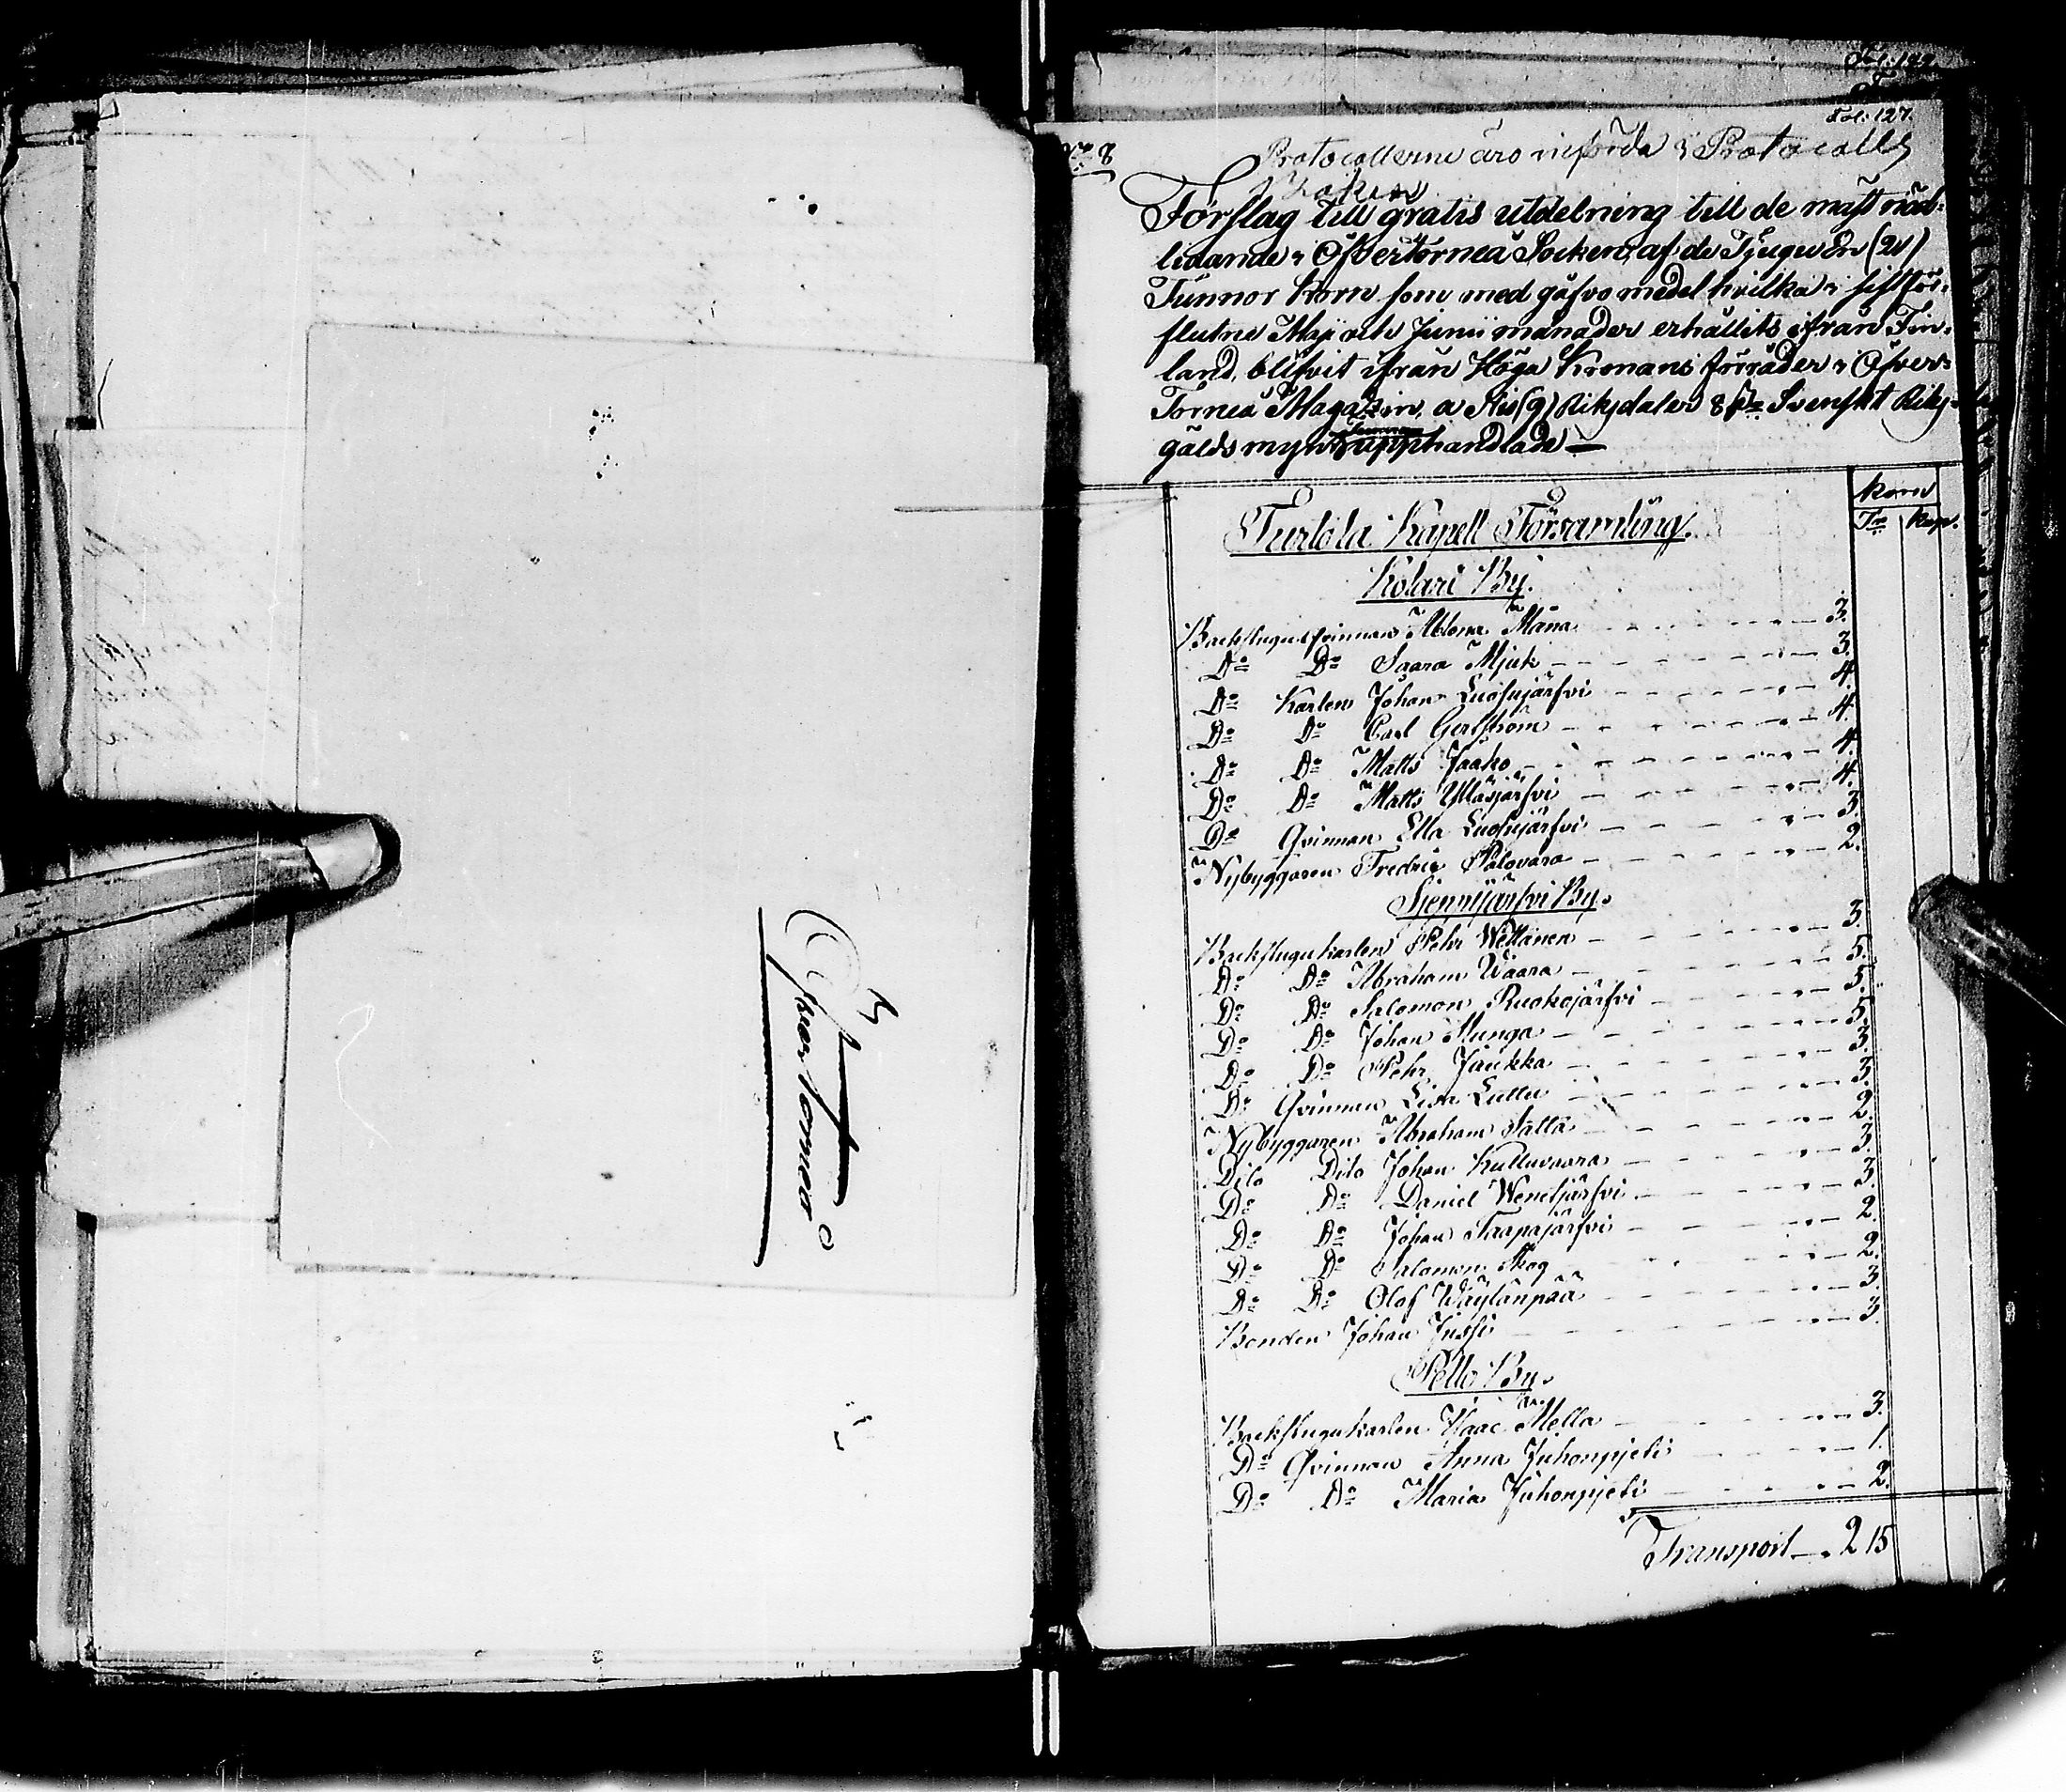 Öfver Torneå
Fol: 127.
N:o 8
Protocollerne äro införda i Protocolls
Boken
Förslag till gratis utdelning till de mäst nöd-
lidande i Öfvertorneå Socken, af de Tjugu En (21)
Tunnor korn som med gåfvo medel hvilka i sistför-
flutne Maji och Junii månader erhållits ifrån Fin-
land, blifvit ifrån Höga Kronans förråder i Öfver-
Torneå Magazin, a Nio (9) Riksdaler 8 s Svenskt Riks-
gälds mynt tunnan upphandlade —
Korn
T:r kap.
Turtola Kapell Församling.
Kolari By.
Backstuguqvinnan Maria 3.
D:o D:o Saara Mjuk 3.
D:o Karlen Johan Luosujärfvi 4.
D:o D:o Carl Gerlström 4.
D:o D:o Matts Jaako 4.
D:o D:o Matts Ylläsjärfvi 4.
D:o Qvinnan Ella Luosujärfvi 3.
Nybyggaren Fredric Palovara 2.
Sjeppijärfvi By.
Backstugukarlen Pehr Wettänen 3.
D:o D:o Abraham Waara 5.
D:o D:o Salomon Ruokojärfvi 5.
D:o D:o Johan Munga 5.
D:o D:o Pehr Jaukka 3.
D:o Qvinnan Lisa Lullu 3.
Nybyggaren Abraham Salla 2.
Dito Dito Johan Kulluvaara 3.
D:o D:o Daniel Wenetjärfvi 3.
D:o D:o Johan Trapujärfvi 2.
D:o D:o Salomon Skog 2.
D:o D:o Olof Wäylänpää 3.
Bonden Johan Jussi 3.
Pello By.
Backstugukarlen Isaac Mella 3.
D:o Qvinnan Anna Juhonpjeti 1.
D:o D:o Maria Juhonpjeti 2.
Transport 2 15